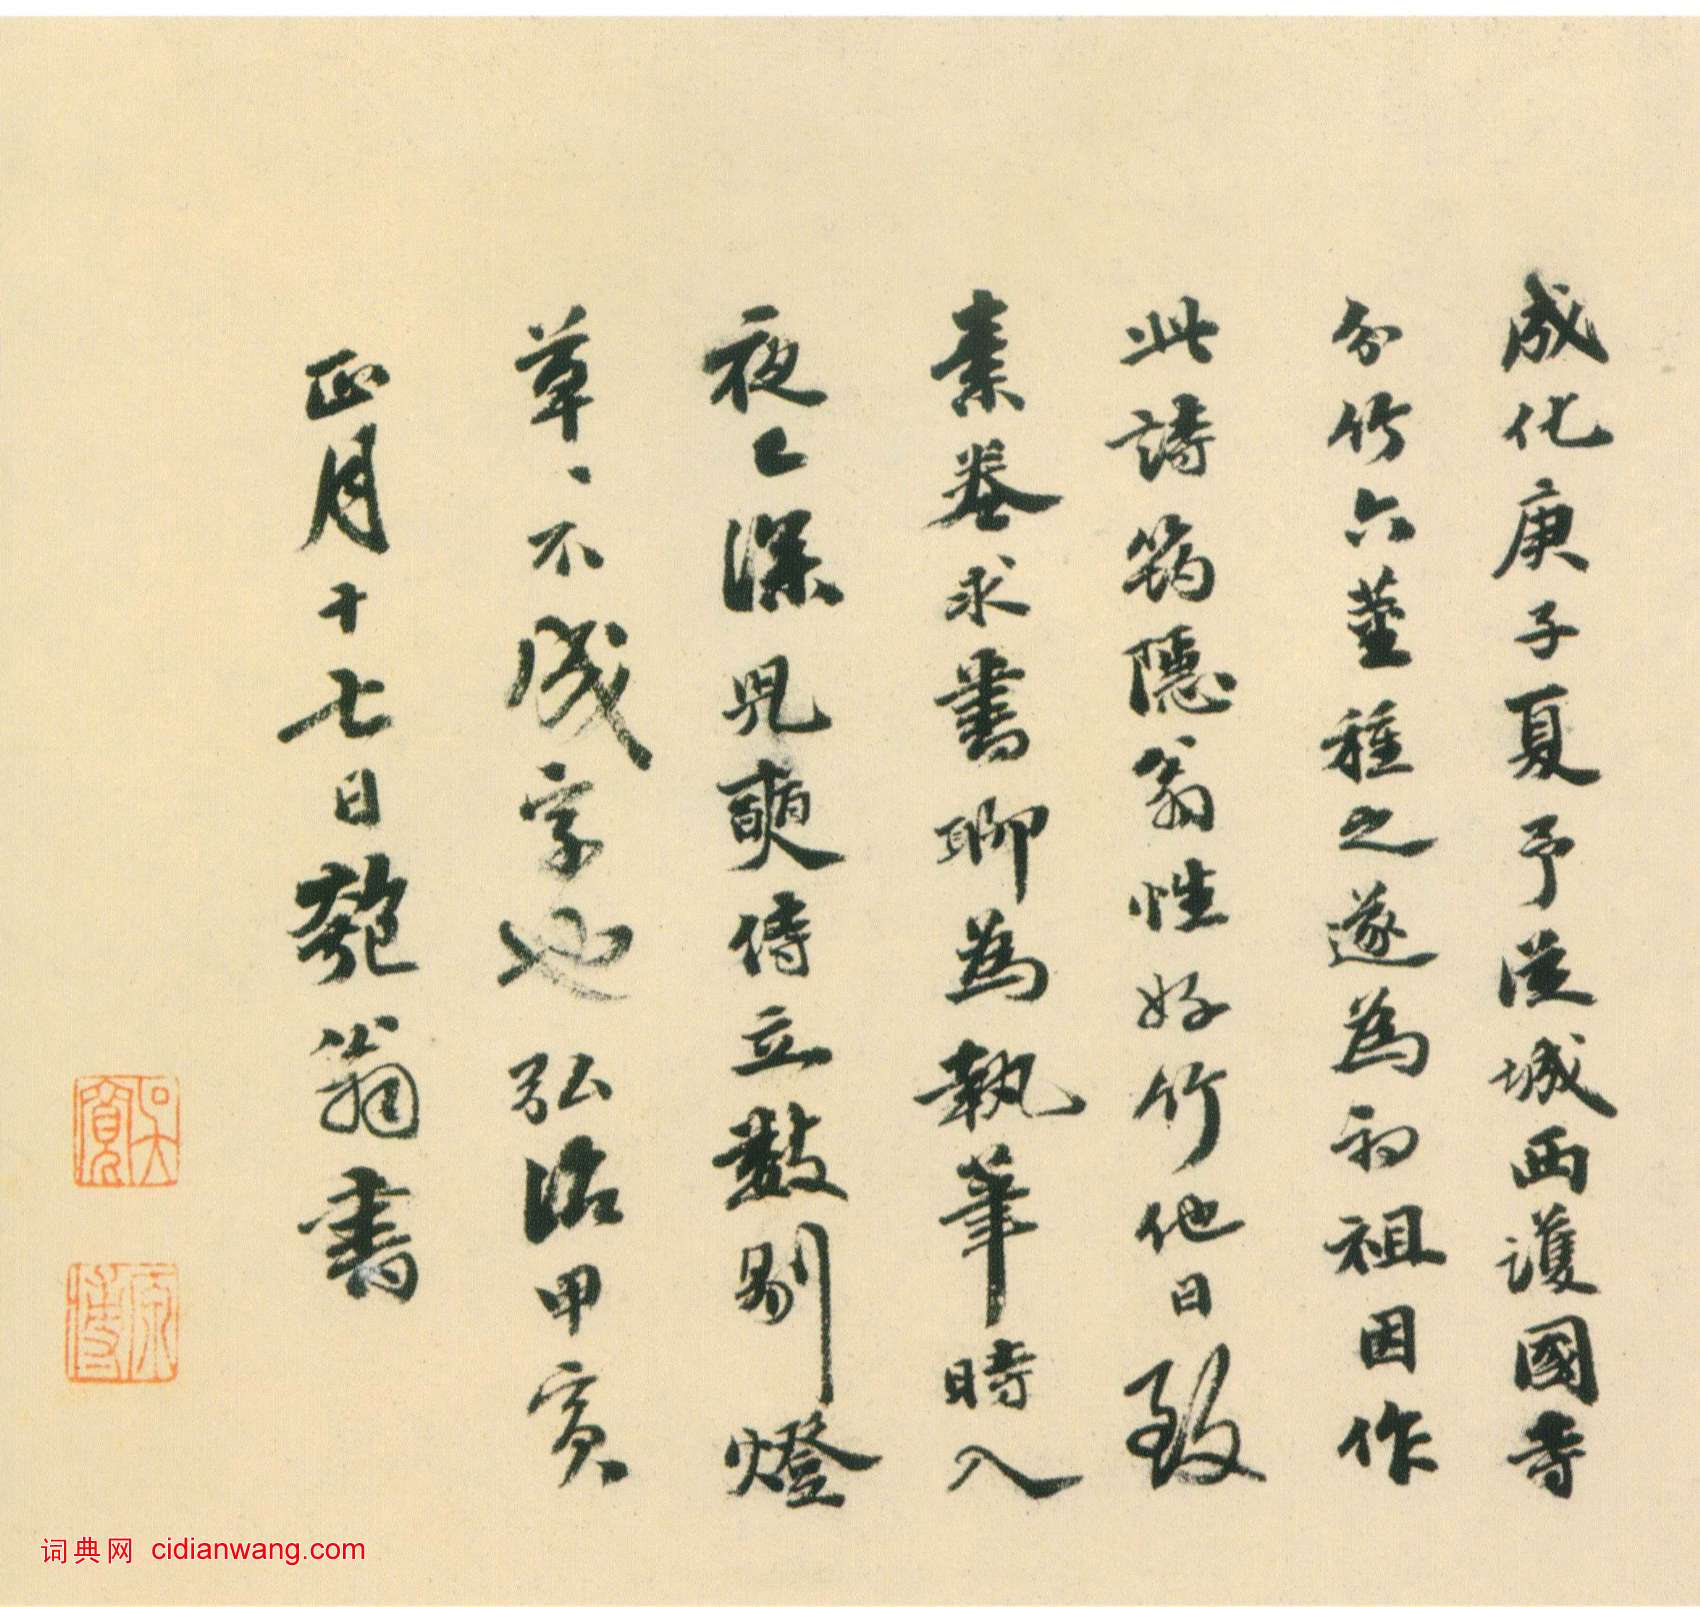 成化庚子夏予從城西護國寺
分竹六莖種之遂為初祖因作
此詩筠隱翁性好竹他日致
素卷求書聊為執筆時入
夜々深兒奭侍立數剔燈
草、不成字也弘治甲寅
正月十七日匏翁書
吳寬
原博
词典网 cidianwang.com